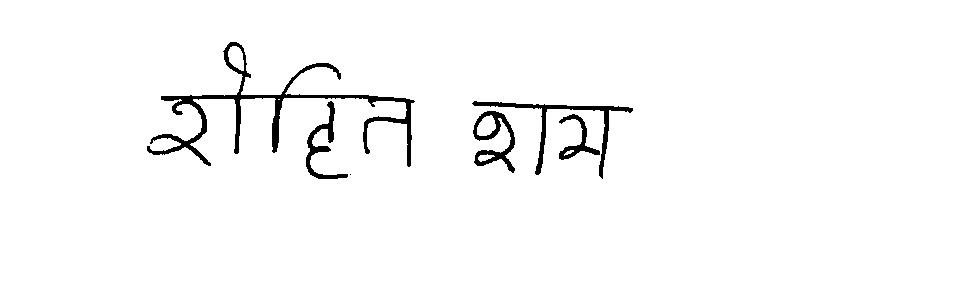 रोहित राम